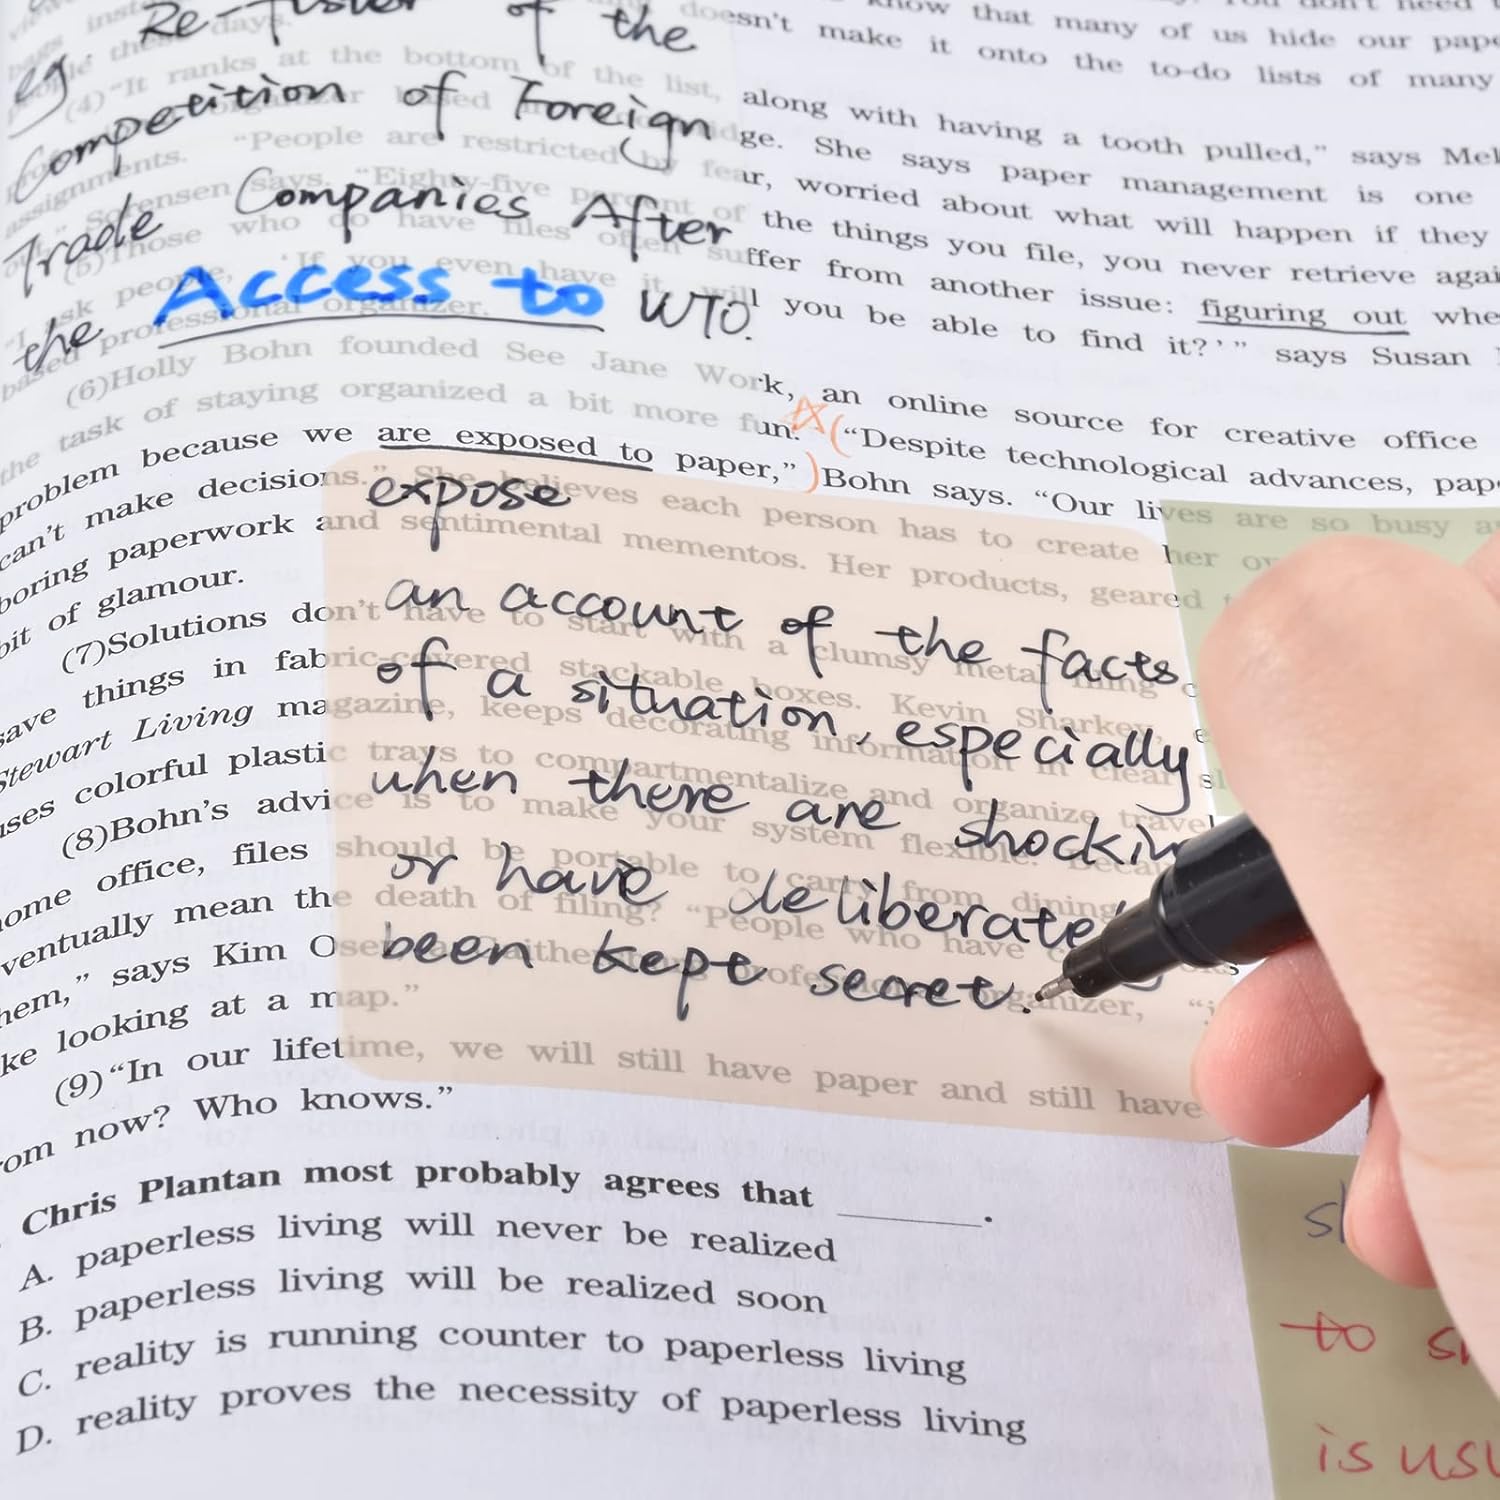 know that many of us hide our
doesn't make it onto the to-do lists of many
(4) "It ranks at the bottom of the list, along with having a tooth pulled," says
ge. She says paper management is one
"People are restricted by fear, worried about what will happen if they
assignments.
Sorensen says. "Eighty-five percent of the things you file, you never retrieve
(5)Those who do have files often suffer from another issue: figuring out
"I ask people, 'If you even have it, will you be able to find it?'" says Susan
based professional organizer.
(6)Holly Bohn founded See Jane Work, an online source for creative office
the task of staying organized a bit more fun. ("Despite technological advances,
problem because we are exposed to paper,") Bohn says. "Our lives are so busy
can't make decisions." She believes each person has to create her
boring paperwork and sentimental mementos. Her products, geared
bit of glamour.
(7)Solutions don't have to start with a clumsy metal filing
save things in fabric-covered stackable boxes. Kevin Sharkey,
Stewart Living magazine, keeps decorating information in clear
uses colorful plastic trays to compartmentalize and organize travel
(8)Bohn's advice is to make your system flexible.
home office, files should be portable to carry from dining
eventually mean the death of filing? "People who have
them," says Kim professional organizer,
like looking at a map."
(9)"In our lifetime, we will still have paper and still have
from now? Who knows."
Chris Plantan most probably agrees that ______.
A. paperless living will never be realized
B. paperless living will be realized soon
C. reality is running counter to paperless living
D. reality proves the necessity of paperless living
eg of the
Competition of Foreign
Trade Companies After
the Access to WTO.
expose
an account of the facts
of a situation, especially
when there are shockin
or have deliberate
been kept secret.
to
is